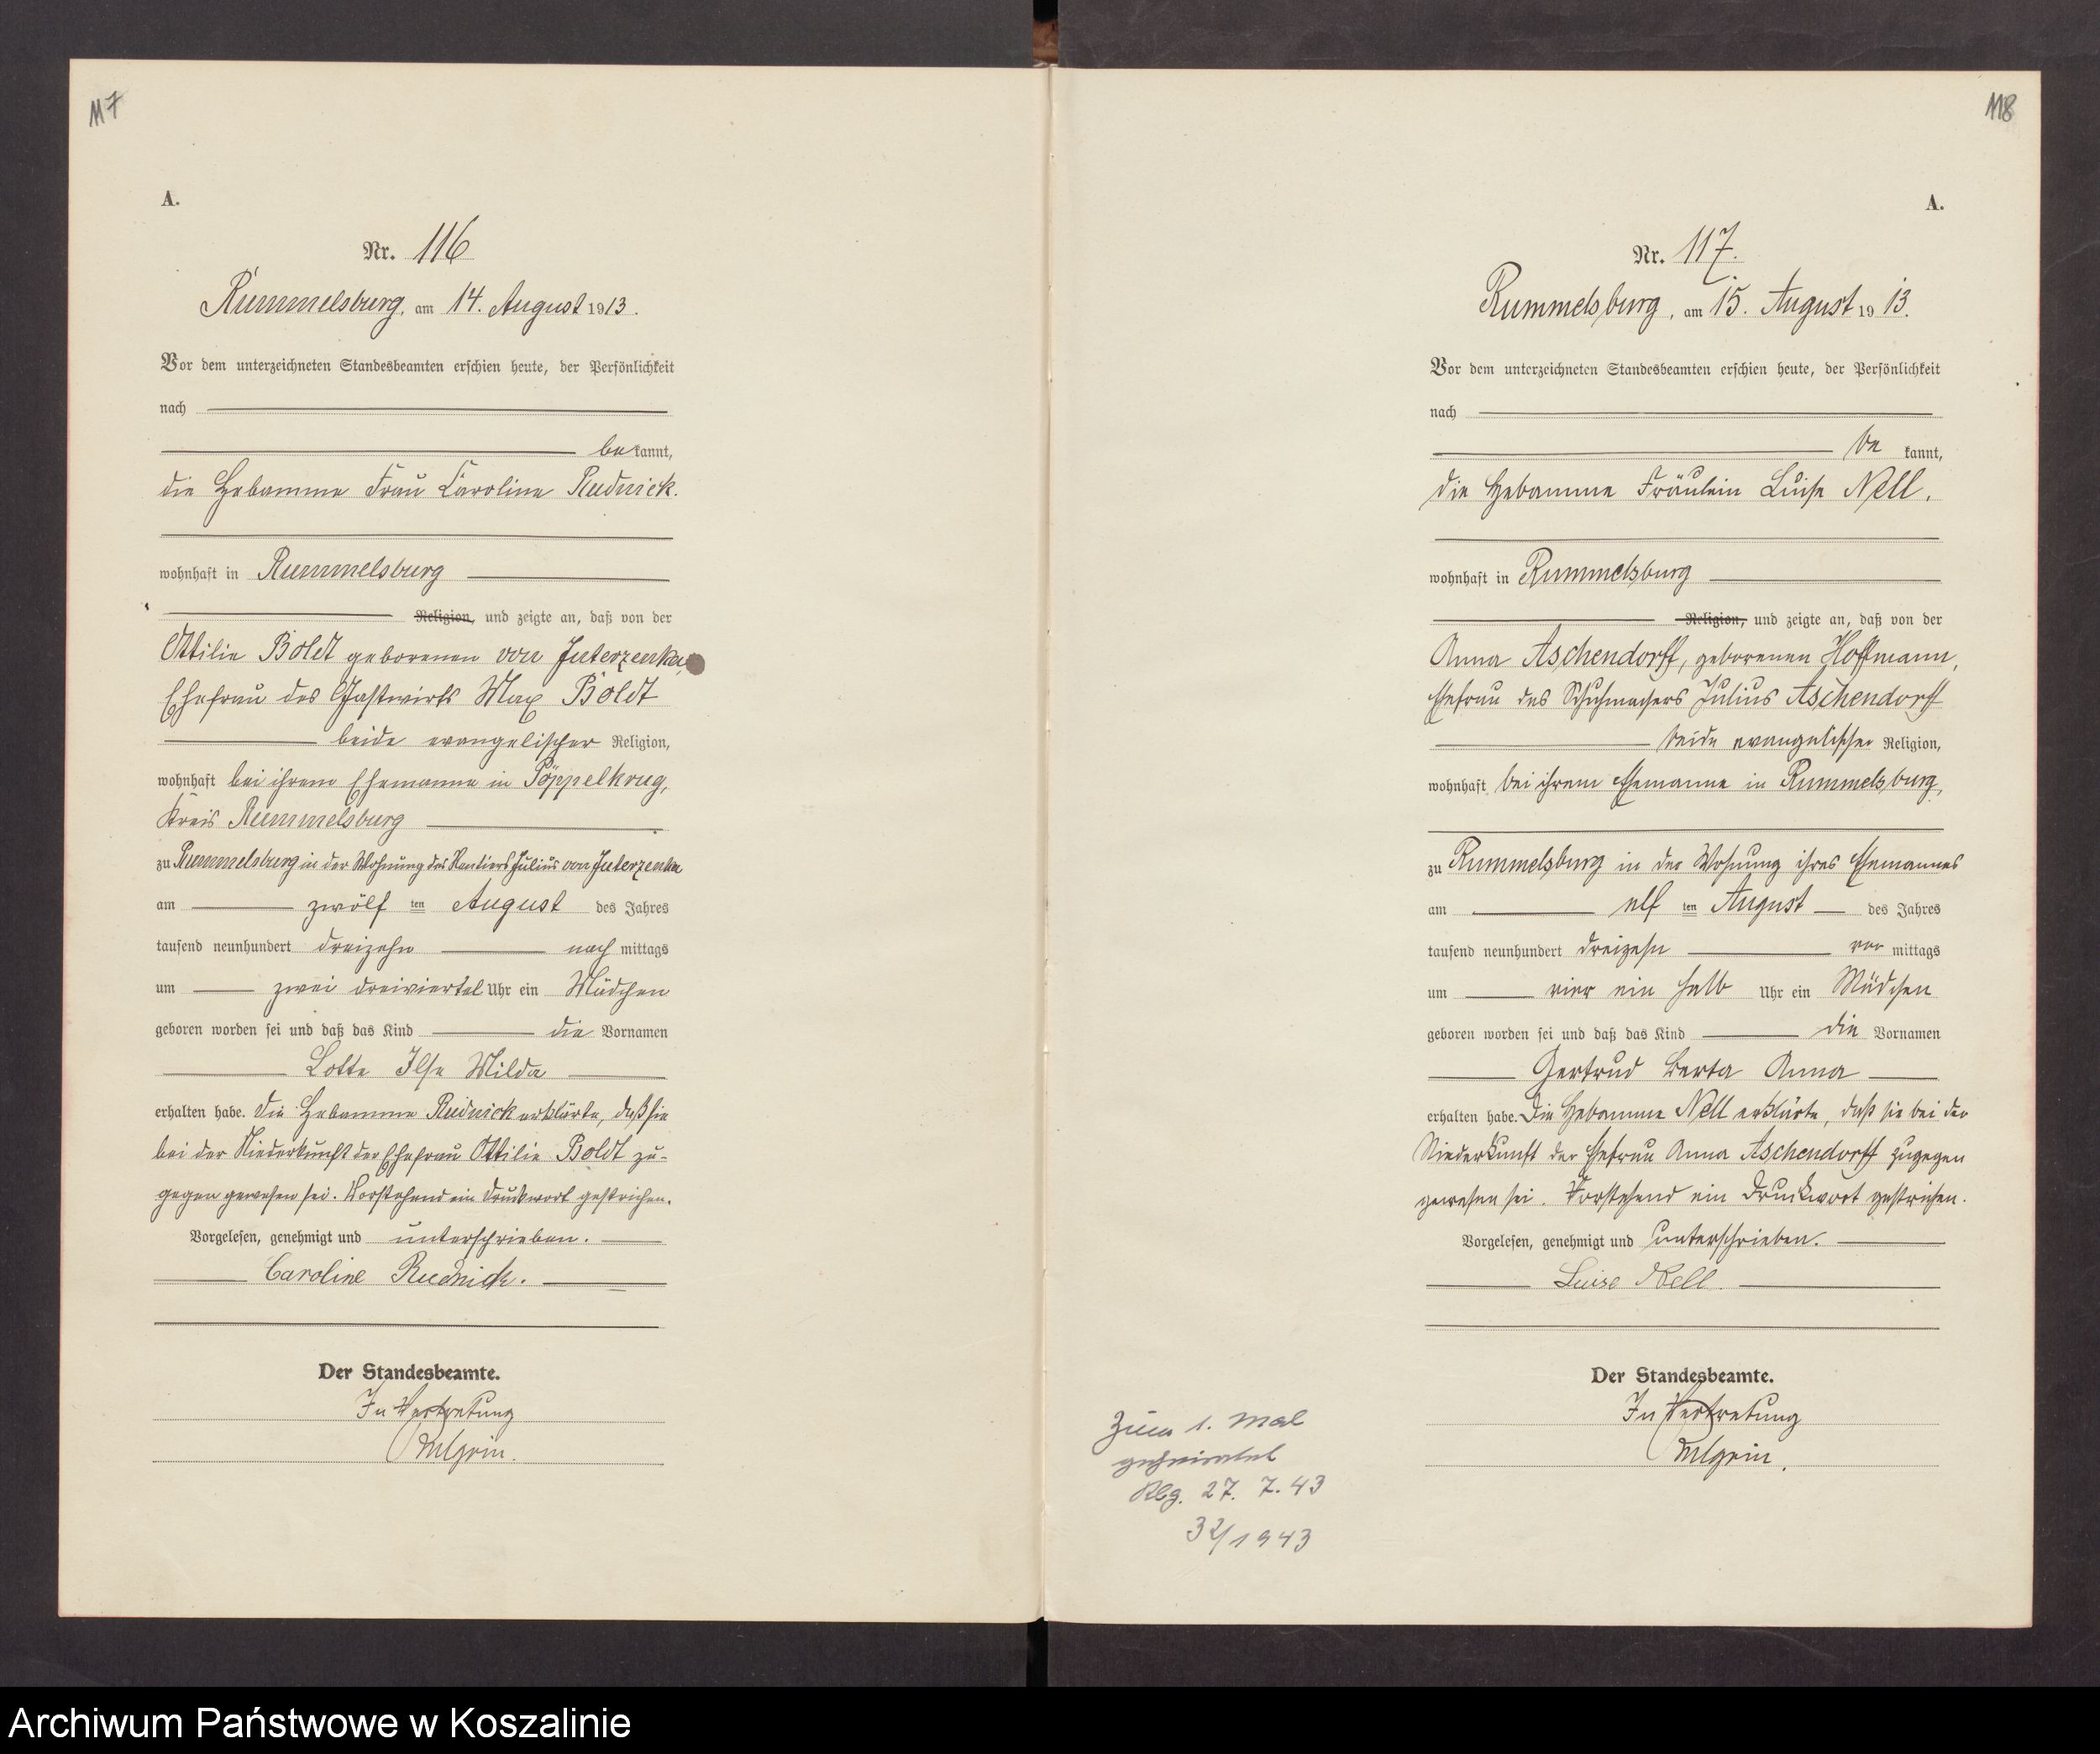 117
A.
Nr. 116
Rummelsburg, am 14. August 1913.
Vor dem unterzeichneten Standesbeamten erschien heute, der Persönlichkeit
nach
bekannt,
die Hebamme Frau Caroline Rudnick.
wohnhaft in Rummelsburg
Religion, und zeigte an, daß von der
Ottilie Boldt geborenen von Juterzenka,
Ehefrau des Gastwirts Max Boldt
beide evangelischer Religion,
wohnhaft bei ihrem Ehemanne in Pöppelkrug,
Kreis Rummelsburg
zu Rummelsburg in der Wohnung des Rentiers Julius von Juterzenka
am zwölf ten August des Jahres
tausend neunhundert dreizehn nach mittags
um zwei dreiviertel Uhr ein Mädchen
geboren worden sei und daß das Kind die Vornamen
Lotte Ilse Milda
erhalten habe. Die Hebamme Rudnick erklärte, daß sie
bei der Niederkunft der Ehefrau Ottilie Boldt zu-
gegen gewesen sei. Vorstehend ein Druckwort gestrichen.
Vorgelesen, genehmigt und unterschrieben.
Caroline Rudnick.
Der Standesbeamte.
In Vertretung
118
A.
Nr. 117.
Rummelsburg, am 15. August 1913.
Vor dem unterzeichneten Standesbeamten erschien heute, der Persönlichkeit
nach
be kannt,
die Hebamme Fräulein Luise Nell,
wohnhaft in Rummelsburg
Religion, und zeigte an, daß von der
Anna Aschendorff, geborenen Hoffmann,
Ehefrau des Schuhmachers Julius Aschendorff
beide evangelischer Religion,
wohnhaft bei ihrem Ehemanne in Rummelsburg,
zu Rummelsburg in der Wohnung ihres Ehemannes
am elf ten August des Jahres
tausend neunhundert dreizehn vor mittags
um vier ein halb Uhr ein Mädchen
geboren worden sei und daß das Kind die Vornamen
Gertrud Berta Anna
erhalten habe. Die Hebamme Nell erklärte, daß sie bei der
Niederkunft der Ehefrau Anna Aschendorff zugegen
gewesen sei. Vorstehend ein Druckwort gestrichen.
Vorgelesen, genehmigt und unterschrieben.
Luise Nell.
Der Standesbeamte.
In Vertretung
Zum 1. Mal
geheiratet
Rbg. 27. 7. 43
32/1943
Archiwum Państwowe w Koszalinie